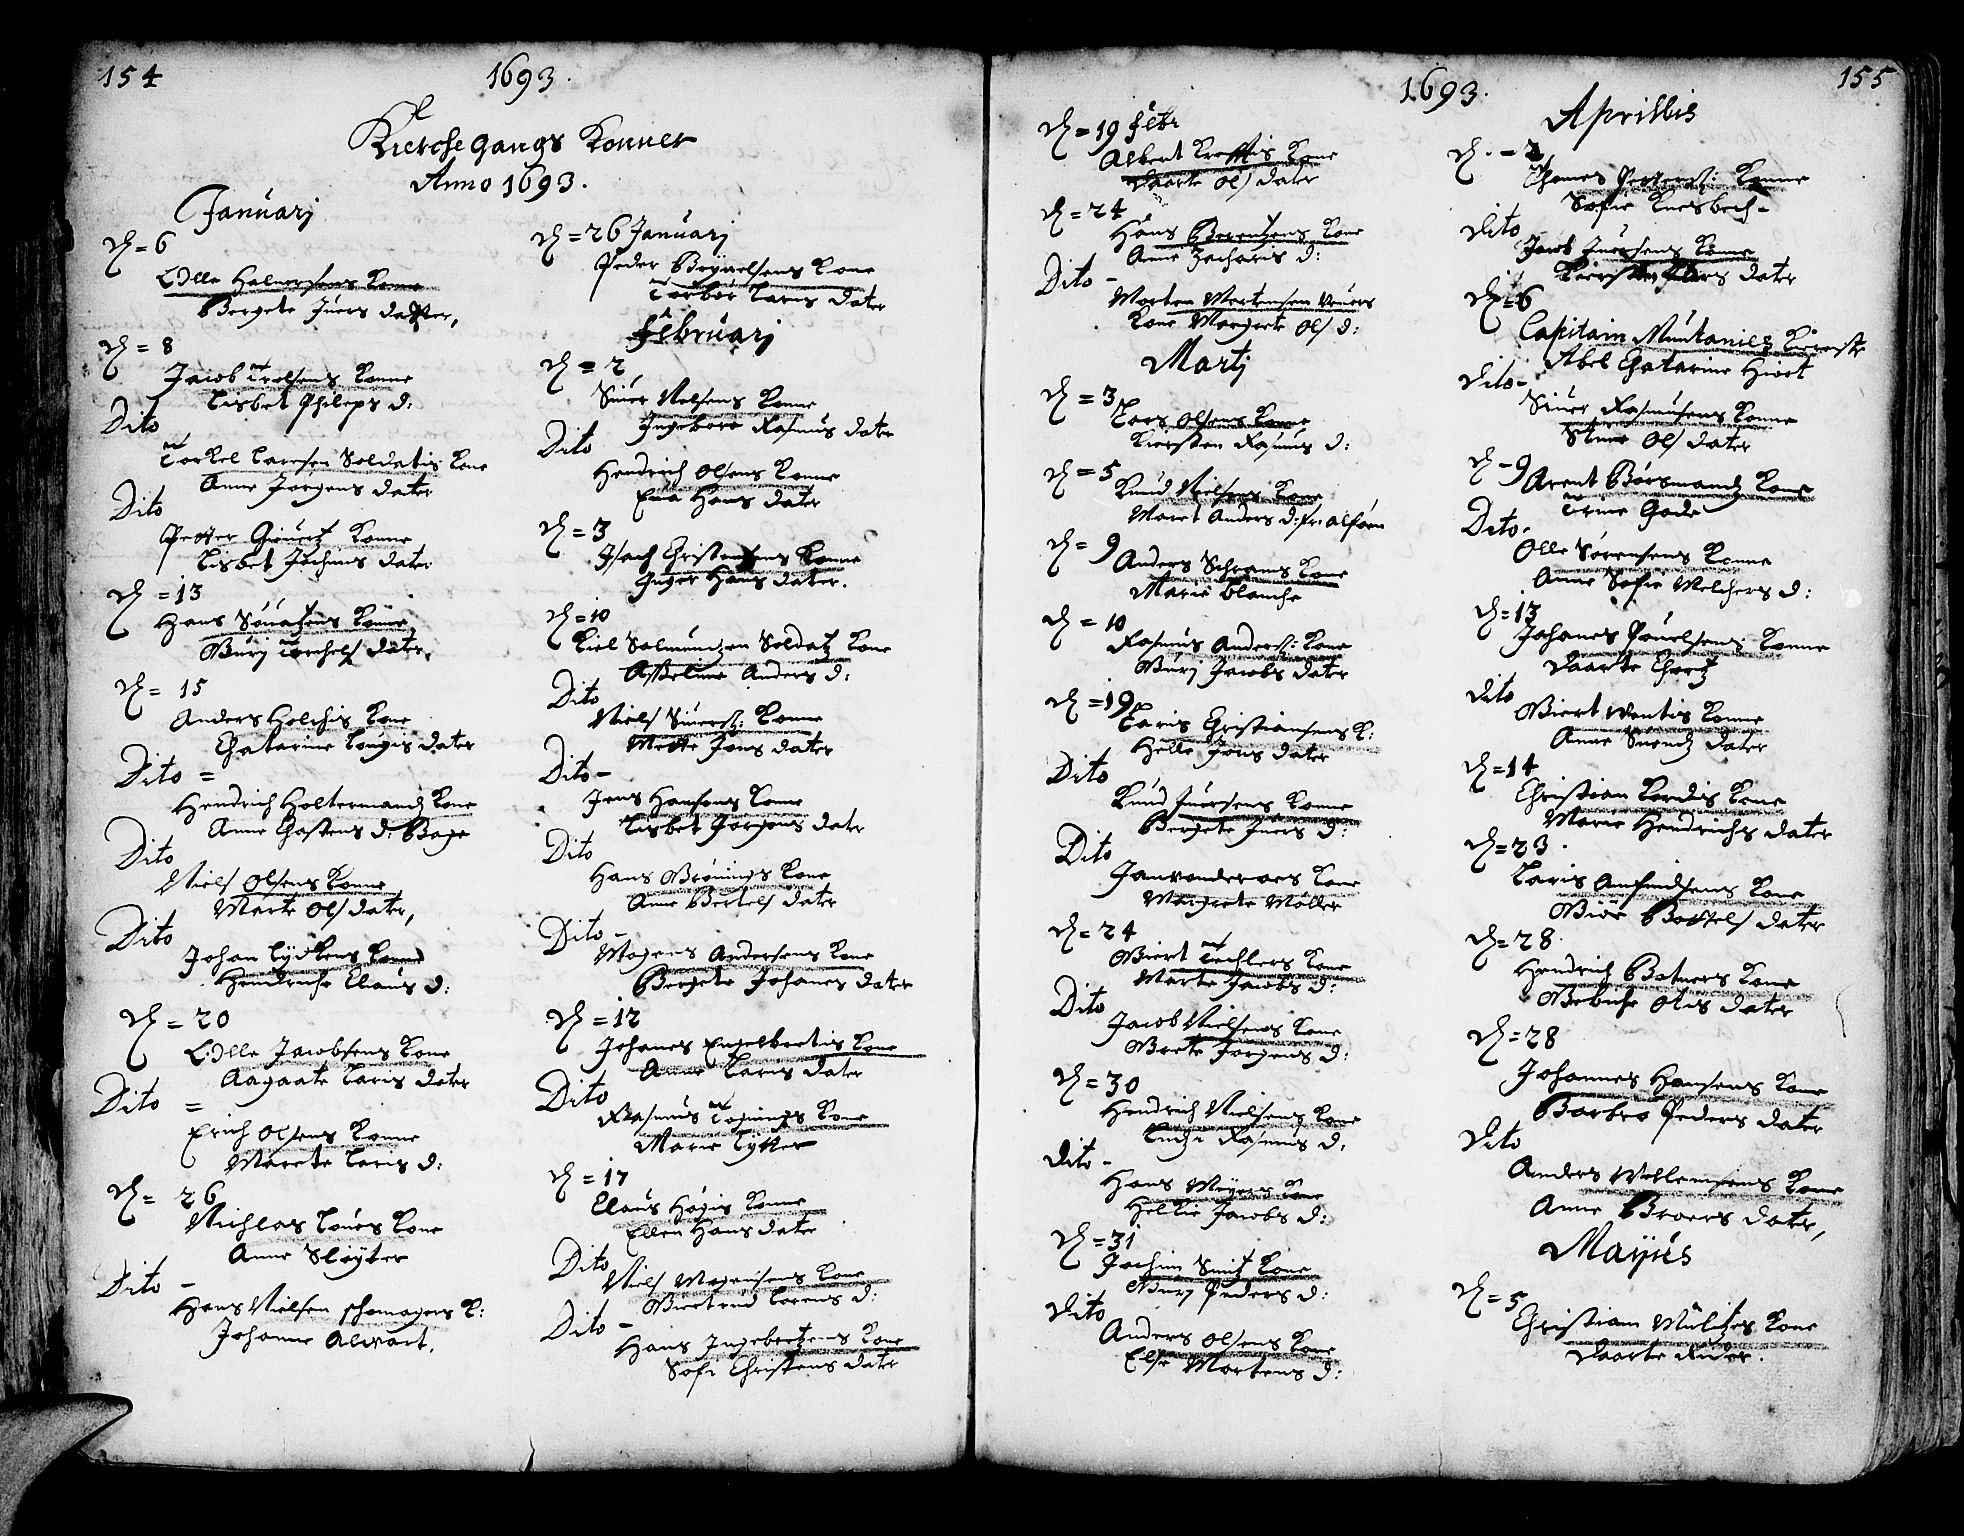 154
1693.
Kierche gangs Konner
Anno 1693.
Januarj
D = 6
Olle Halvorsens Konne
Bergete Juers datter,
D = 8
Jacob Trolsens Konne
Lisbet Phileps d:
Dito
Torkel Larsen Soldatis Kone
Anne Jørgens dater
Dito
Petter Giøuertz Konne
Lisbet Jochims dater
D = 13
Hans Konne
Burj Torchels dater.
D = 15
Anders Holchis Kone
Chatarine Lougis dater
Dito =
Hendrich Holtermandz Kone
Anne Chastens d: Bage
Dito
Niels Olsens Konne
Marte Ols dater,
Dito
Johan Lydkens Konne
Hendriche Claus d:
D = 20
Olle Jacobsens Kone
Aagaate Laris dater
Dito =
Erich Olsens Konne
Marete Laris d:
D = 26
Nichlas Loues Kone
Anne Sløyter
Dito -
Hans Nielsen schomagers K:
Johanne Alwart.
D = 26 Januarj
Peder Kone
Torbor Laris dater
Februarj
D = 2
Siuer Nelsens Konne
Ingebore Rasmus dater
Dito
Hendrich Olsens Konne
Eua Hans dater
D = 3
Isach Christensens Konne
Inger Hans dater.
D = 10
Kiel Salmundzen Soldatz Kone
Asseline Anders d:
Dito
Niels Siuers: Konne
Mette Jons dater
Dito -
Jens Hansens Konne
Lisbet Jørgens dater
Dito
Hans Brønings Kone
Anne Bertels dater
Dito -
Mogens Andersens Kone
Bergete Johanes dater
D = 12
Johanes Engelbretis Kone
Anne Laris dater
Dito
Rasmus Kone
Marie Lytter
D = 17
Claus Høyis Konne
Ellen Hans dater
Dito
Niels Mogensens Kone
Giertrud Larens d:
Dito -
Hans Ingebretzens Kone
Sofi Christens dater
1693.
155
D = 19 Febr
Albert Kone
Daarte Ols dater
D = 24
Hans Berentzens Kone
Anne Zacharis d:
Dito -
Morten Mortensen
Kone Margrete Ols d:
Martj
D = 3
Lars Olsens Kone
Kiersten Rasmus d:
D = 5
Knud Nielsens Kone
Maret Anders d: fra Alføen
D = 9
Anders Kone
Marie Blanche
D = 10
Rasmus Anders: Kone
Burj Jacobs dater
D = 19
Laris Christiansens K:
Helle Jons dater
Dito
Knud Juersens Konne
Bergete Juers d:
Dito
Janvanderoes Kone
Margrete Møller
D = 24
Giert Techlers Kone
Marte Jacobs d:
Dito
Jacob Nielsens Kone
Brete Jørgens d:
D = 30
Hendrich Nielsens Kone
Rasmus d:
Dito -
Hans Meyers Kone
Helkie Jacobs d:
D = 31
Jochim Smit Kone
Burj Peders d:
Dito
Anders Olsens Kone
Else Mortens d:
Aprillis
D - 2
Thomes Petters: Konne
Sofie
Dito
Jacob Juersens Konne
Kiersten dater
D = 6
Capitain Muntanies Kierste
Abel Chatarine Hiort
Dito -
Siuer Rasmusens Konne
Stine Ols dater
D - 9
Arent Børsmandz Kone
Trine Gade
Dito -
Olle Sørensens Konne
Anne Sofie Melchers d:
D = 13
Johanes Pouelsens: Konne
Daarte
Dito
Giert Wentis Konne
Anne Suendz dater
D = 14
Christian Kordis Kone
Marie Hendrichs dater
D = 23.
Laris Amfindsens Kone
Giøe Bottels dater
D = 28
Hendrich Botners Kone
Bebiche Otis dater
D = 28
Johannes Hansens Kone
Barbro Peders dater
Dito
Anders Wellemsens Kone
Anne Broers dater,
Mayus
D = 5
Christian Mültzes Kone
Daarte Rider.